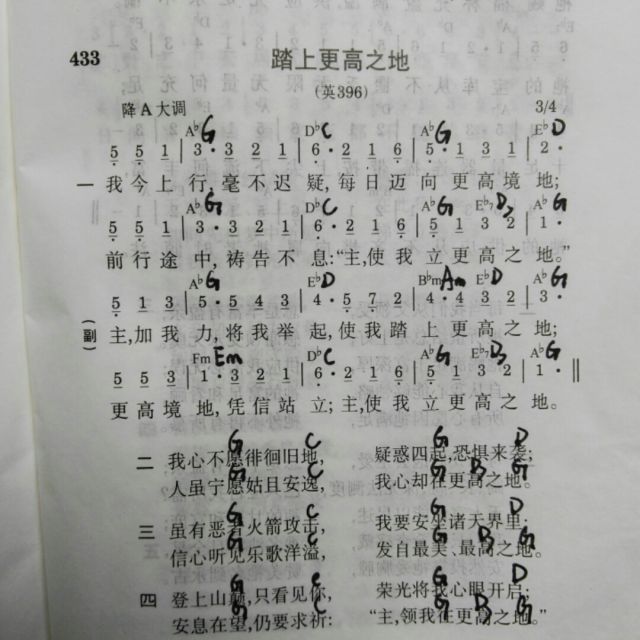 433 踏上更高之地
(英396)
降A大调 3/4
A♭ G D♭ C A♭ G E♭ D
5 5 1 | 3· 3 2 1 | 6· 2 1 6 | 5· 1 3 1 | 2·
一 我今上行,毫不迟疑,每日迈向更高境地;
A♭ G D♭ C A♭ G E♭7 D7 A♭ G
5 5 1 | 3· 3 2 1 | 6· 2 1 6 | 5 1 3 2 | 1·
前行途中,祷告不息:“主,使我立更高之地。”
A♭ G E♭ D B♭m Am E♭ D A♭ G
5 1 3 | 5· 5 4 3 | 2· 5 7 2 | 4· 4 3 2 | 3·
(副) 主,加我力,将我举起,使我踏上更高之地;
Fm Em D♭ C A♭ G E♭7 D7 A♭ G
5 5 3 | 1· 3 2 1 | 6· 2 1 6 | 5 1 3 2 | 1· ‖
更高境地,凭信站立;主,使我立更高之地。
G C G D
二 我心不愿徘徊旧地, 疑惑四起,恐惧来袭;
G C G D G
人虽宁愿姑且安逸, 我心却在更高之地。
G C G D
三 虽有恶者火箭攻击, 我要安坐诸天界里;
G C G D G
信心听见乐歌洋溢, 发自最美、最高之地。
G C G D
四 登上山巅,只看见你, 荣光将我心眼开启;
G C G D G
安息在望,仍要求祈: “主,领我往更高之地。”